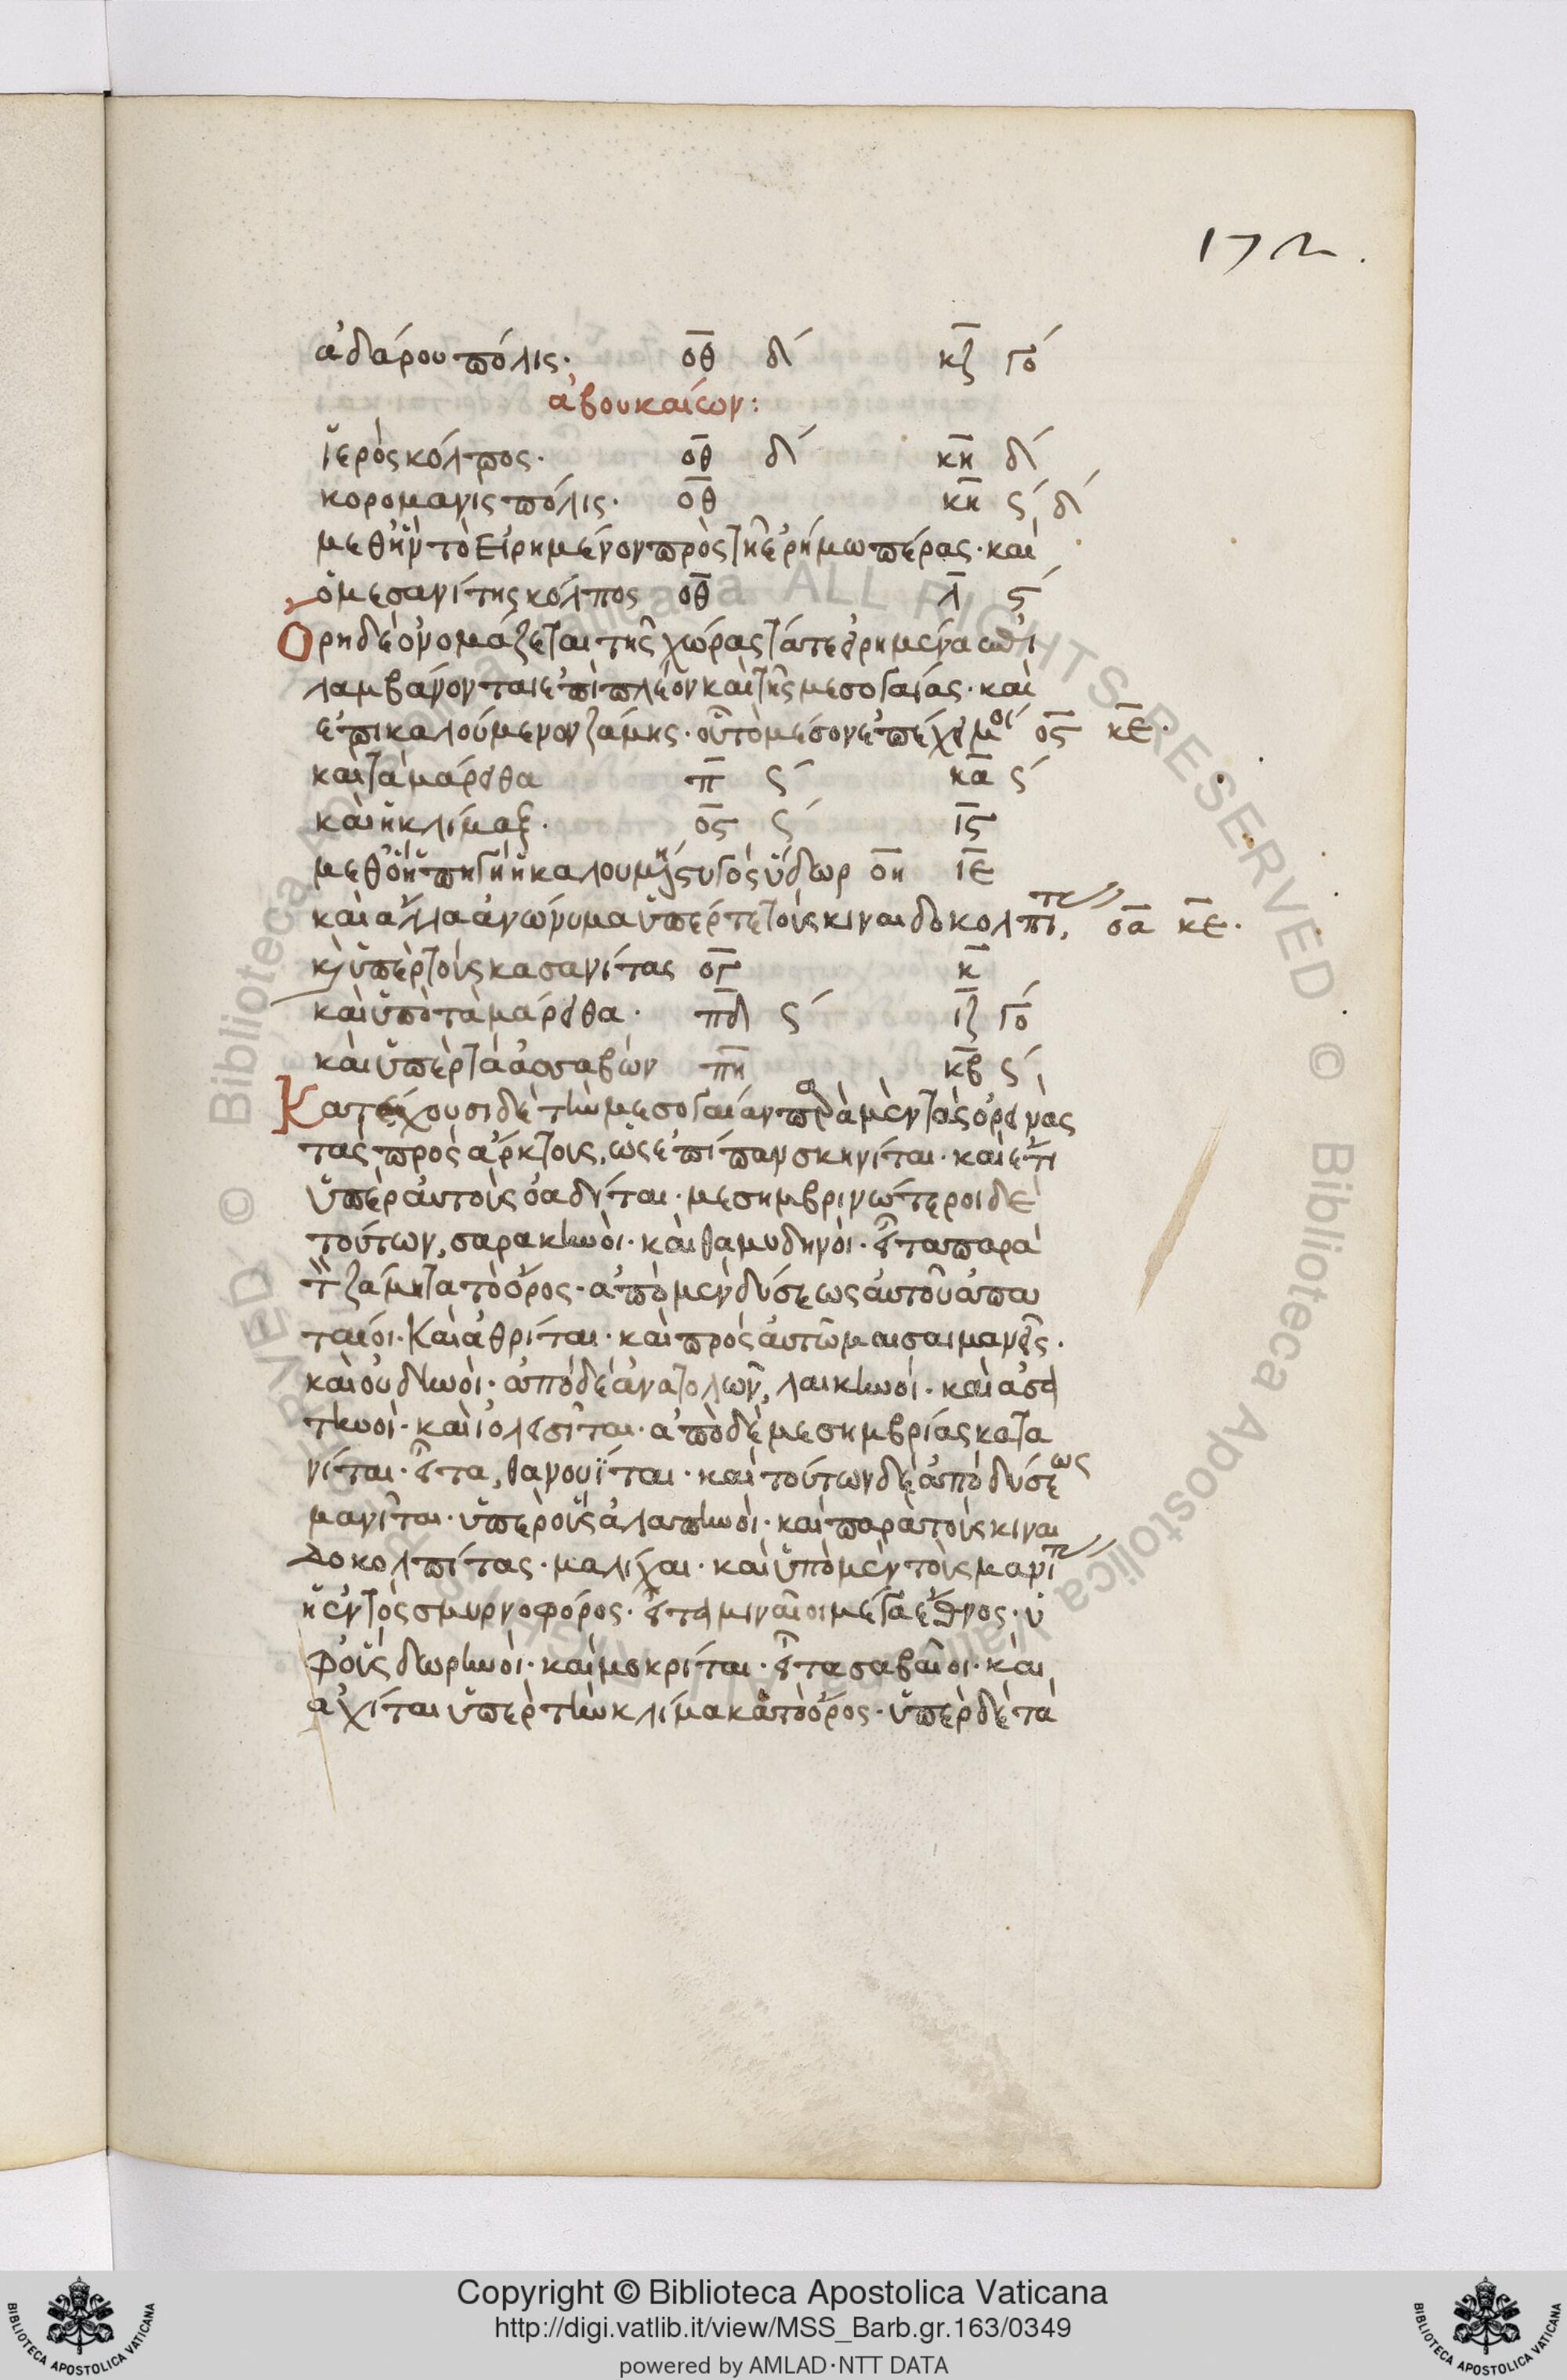 172.
ἀδάρου πόλις· ο̅θ̅ δ΄ κ̅ζ̅ γο΄
ἀβουκαίων:
ἱερὸς κόλπος· ο̅θ̅ δ΄ κ̅η̅ δ΄
κορομανις πόλις· ο̅θ̅ κ̅η̅ ς΄ δ΄
μεθ ἣν τὸ εἰρημένον πρὸς τῆ ἐρήμω πέρας· καὶ
ὁ μεσανίτης κόλπος ο̅θ̅ λ̅ ς΄
Ορη δὲ ὀνομάζεται τῆς χώρας τά τε εἰρημένα
λαμβάνονται ἐπὶ πλέον καὶ τῆς μεσογαίας· καὶ
ἐπικαλούμενον ζάμης· οὗ τὸ μέσον ἐπέχει μοί ο̅ς̅ κ̅ε̅·
καὶ τὰ μάρειθα π̅ ς΄ κ̅α̅ ς΄
καὶ ἡ κλίμαξ· ο̅ς̅ ς΄ ι̅ς̅
μεθ ὃ ἡ πηγὴ ἡ καλουμένη στυγὸς ὕδωρ ο̅η̅ ι̅ε̅
καὶ ἄλλα ἀνώνυμα ὑπέρ τε τοὺς κιναιδοκολπι, ο̅α̅ κ̅ε̅·
κ ὑπὲρ τοὺς κασανίτας ο̅γ̅ κ̅
καὶ ὑπὸ τὰ μάρειθα· π̅δ̅ ς΄ ι̅ζ̅ γο΄
καὶ ὑπὲρ τὰ ἀσσαβών π̅η̅ κ̅β̅ ς΄
Κατέχουσι δὲ τὴν μεσογαίαν παρὰ μὲν τὰς ὀρεινὰς
τὰς πρὸς ἄρκτοις, ὡς ἐπίπαν σκηνίται· καὶ ἔτι
ὑπὲρ αὐτοὺς ὁαδίται· μεσημβρινώτεροι δὲ
τούτων, σαρακηνοὶ· καὶ θαμυδηνοί· εἶτα παρὰ
τ ζάμητα τὸ ὄρος· ἀπὸ μὲν δύσεως αὐτοῦ ἀπα
ταιοι· Καὶ ἀθρίται· καὶ πρὸς αὐτῶ μαισαιμανεῖς·
καὶ οὐδηνοὶ· ἀπὸ δὲ ἀνατολῶν, λαικηνοί· καὶ ἀσα
τηνοὶ· καὶ ἰολεισῖται· ἀπὸ δὲ μεσημβρίας κατα
νίται· εἶτα, θανουῖται· καὶ τούτων δὲ ἀπὸ δύσεως
μανῖται· ὑπὲρ οὓς ἀλαπηνοὶ· καὶ παρὰ τοὺς κιναι
δοκολπίτας· μαλίχαι· καὶ ὑπὸ μὲν τοὺς μανι
ἡ ἐντὸς σμυρνοφόρος· εἶτα μιναῖοι μέγα ἔθνος· ὑ
φ οὓς δωρηνοὶ· καὶ μοκρίται· εἶτα σαβαῖοι· καὶ
ἀχίται ὑπὲρ τὴν κλίμακα τὸ ὄρος· ὑπὲρ δὲ τὰ
© Biblioteca Apostolica Vaticana ALL RIGHTS RESERVED © Biblioteca Apostolica Vaticana
Copyright © Biblioteca Apostolica Vaticana
http://digi.vatlib.it/view/MSS_Barb.gr.163/0349
powered by AMLAD·NTT DATA
BIBLIOTECA APOSTOLICA VATICANA
BIBLIOTECA APOSTOLICA VATICANA